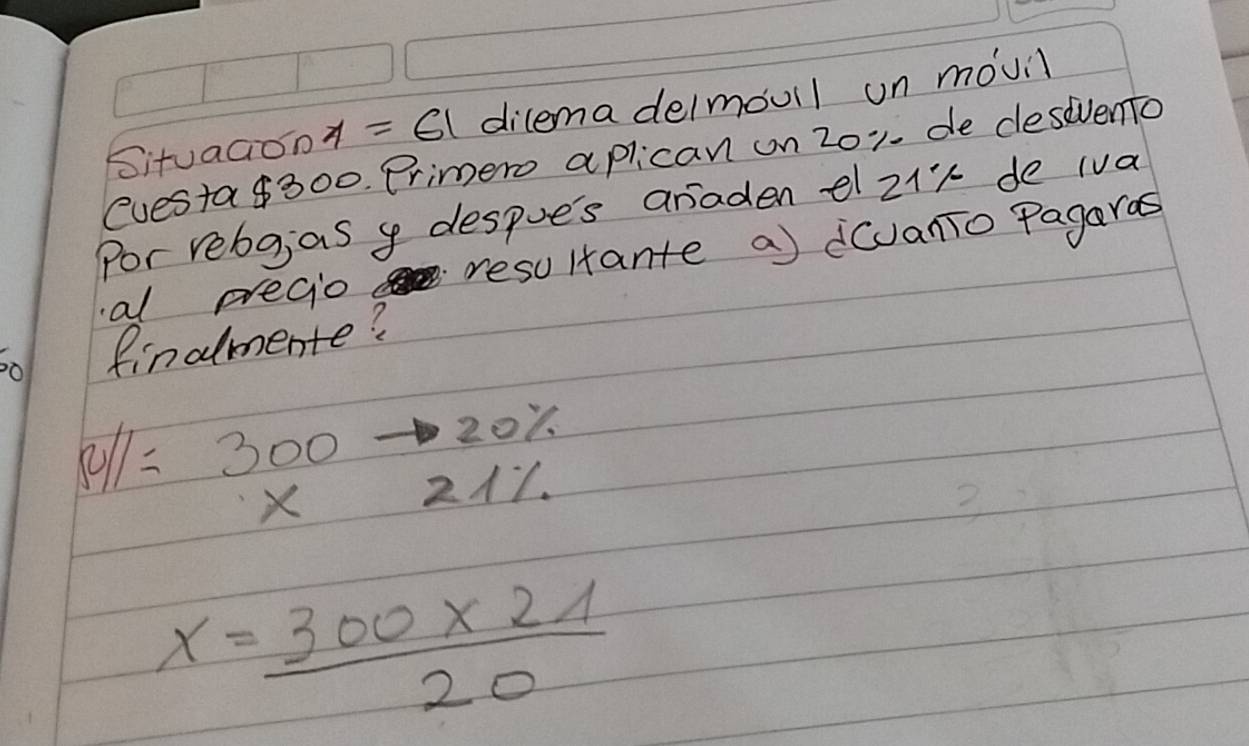 Situación 1 = El dilema del móvil un móvil
cuesta $300. Primero aplican un 20% de descuento
Por rebajas y después añaden el 21% de iva
al precio resultante a) ¿Cuanto Pagaras
finalmente?
R// = 300 → 20%
x 21%
x = 300 x 21
20